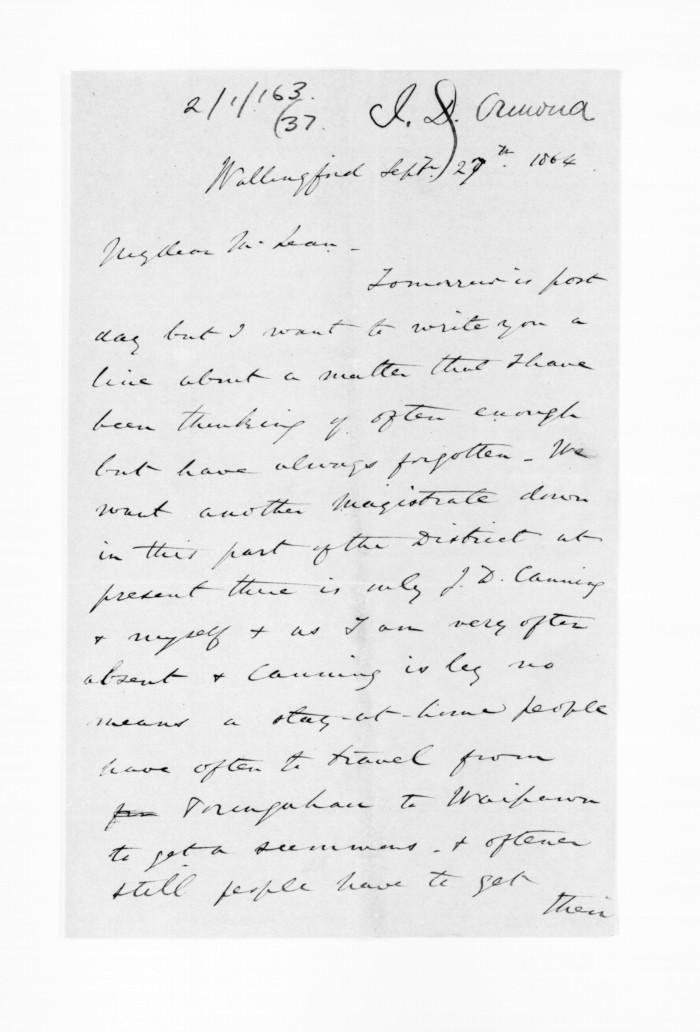 2/1/163.
(37.
J. D. Ormond
Wallingford Septr. 27th. 1864
My dear McLean -
Tomorrow is post
day but I want to write you a
line about a matter that I have
been thinking of often enough
but have always forgotten - We
want another Magistrate down
in this part of the District at
present there is only J. D. Canning
& myself & as I am very often
absent & Canning is by no
means a stay-at-home people
have often to travel from
Porongahau to Waipawa
to get a summons - & oftener
still people have to get
their